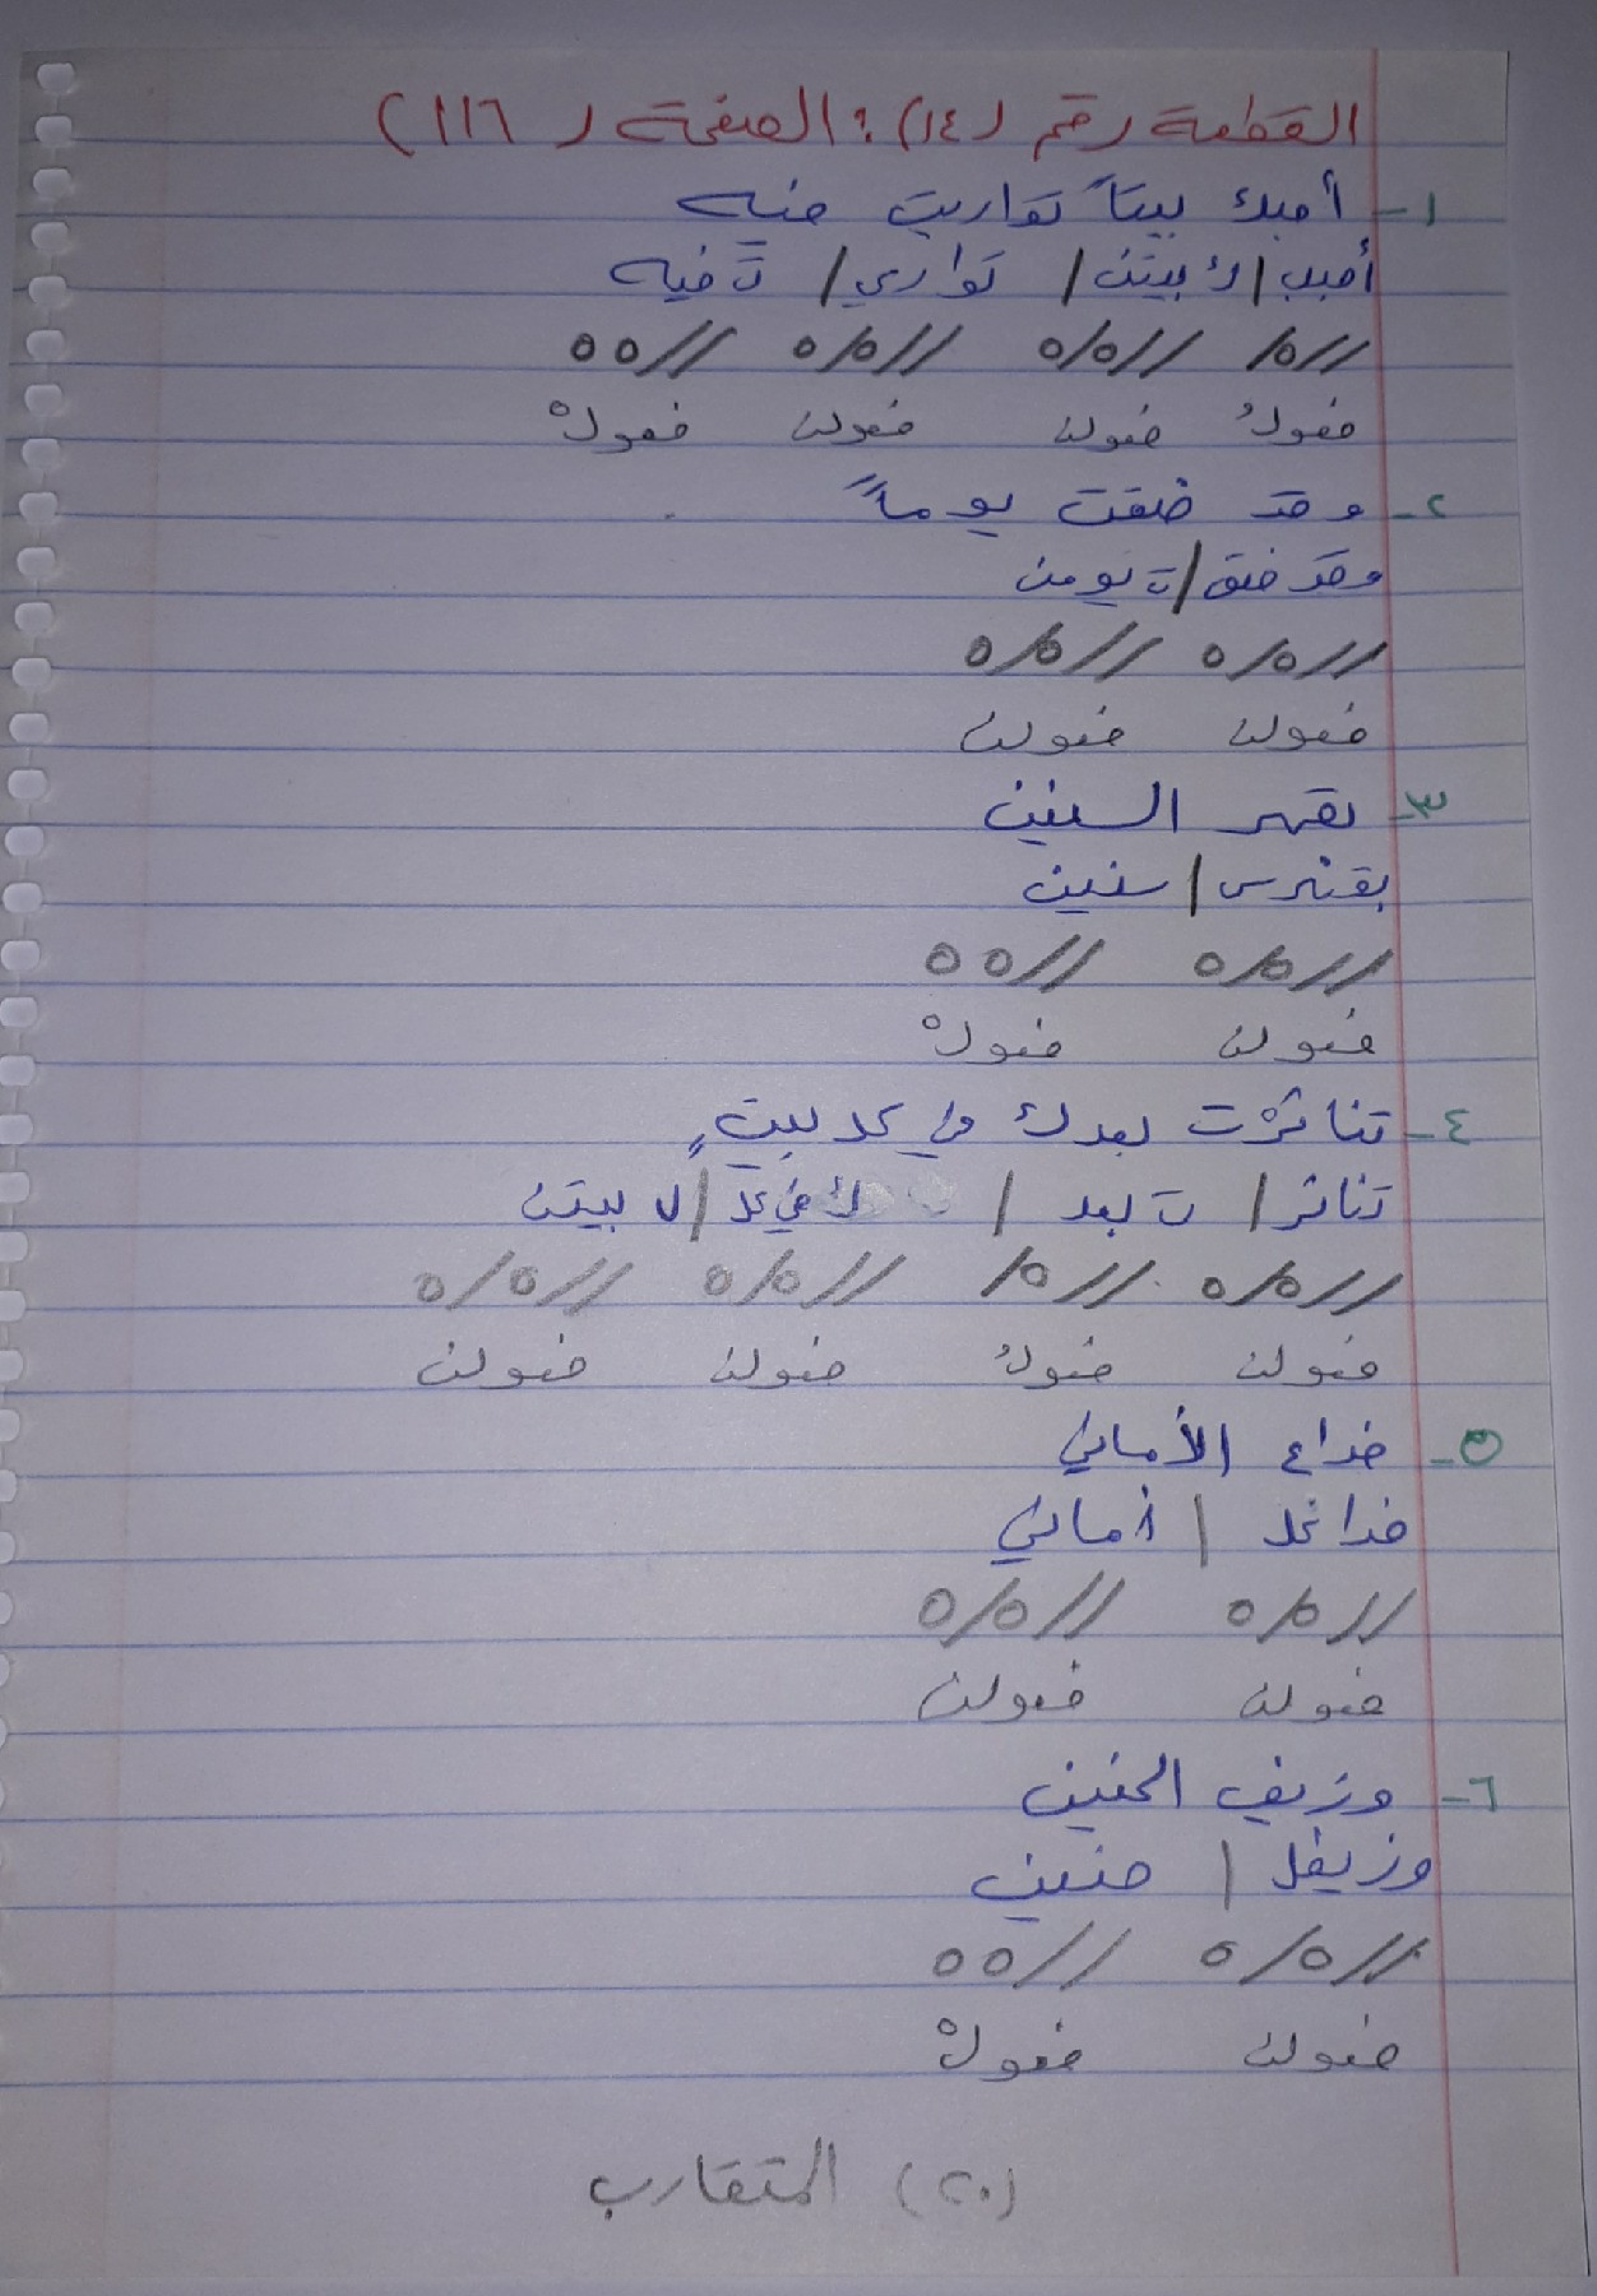 القطعة رقم (١٤): الصفحة (١١٦)
١- أحبك بيتاً تواريت فيه
أحبب / ك بيتن / تواري / ت فيه
//٥/ //٥/٥ //٥/٥ //٥٥
فعولُ فعولن فعولن فعولْ
٢- وقد ضقت يوماً
وقد ضق / ت يومن
//٥/٥ //٥/٥
فعولن فعولن
٣- بقهر السنين
بقهرس / سنين
//٥/٥ //٥٥
فعولن فعولْ
٤- تناثرْت بعدك في كل بيتٍ
تناثر / ت بعد / ك في كل / ل بيتن
//٥/٥ //٥/ //٥/٥ //٥/٥
فعولن فعولُ فعولن فعولن
٥- خداع الأماني
خداعل / أماني
//٥/٥ //٥/٥
فعولن فعولن
٦- وزيف الحنين
وزيفل / حنين
//٥/٥ //٥٥
فعولن فعولْ
(٢٠) المتقارب